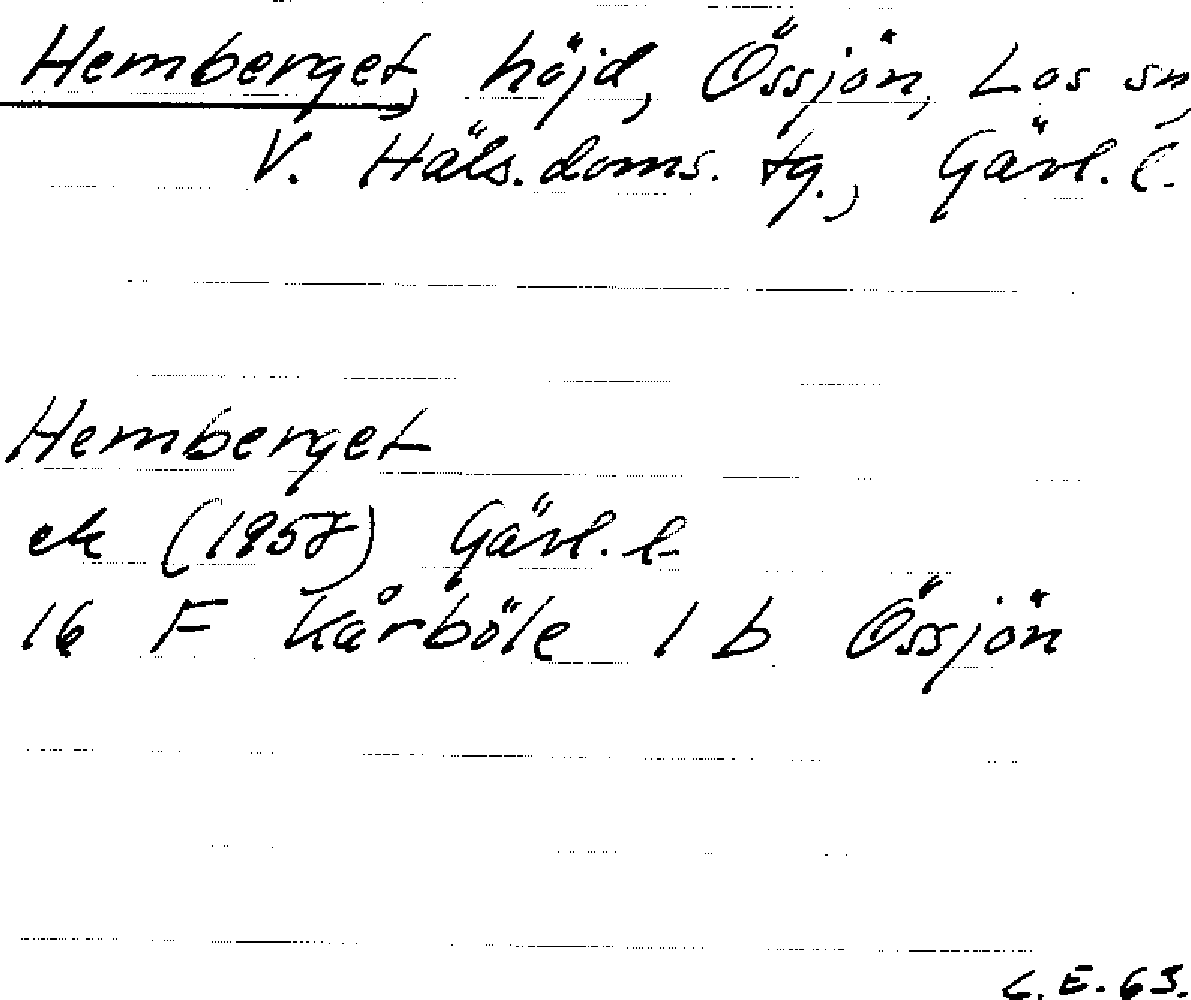 Hemberget, höjd, Össjön, Los sn,
V. Häls. doms. tg., Gävl. l.
Hemberget
ek (1958) Gävl. l.
16 F Kårböle 1 b Össjön
C. E. 63.